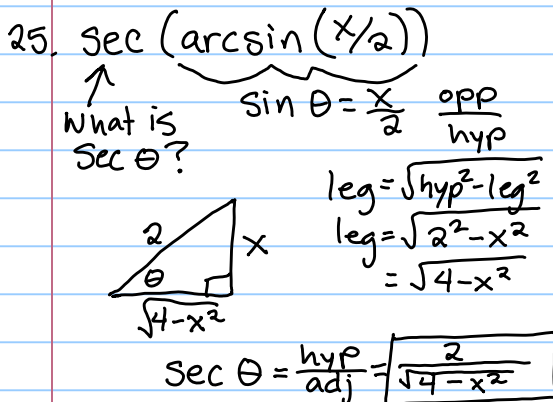 25. sec (arcsin (x/2))
What is sec θ?
sin θ = x/2 opp/hyp
leg = √hyp²-leg²
leg = √2²-x²
= √4-x²
2
x
θ
√4-x²
sec θ = hyp/adj = 2/√4-x²